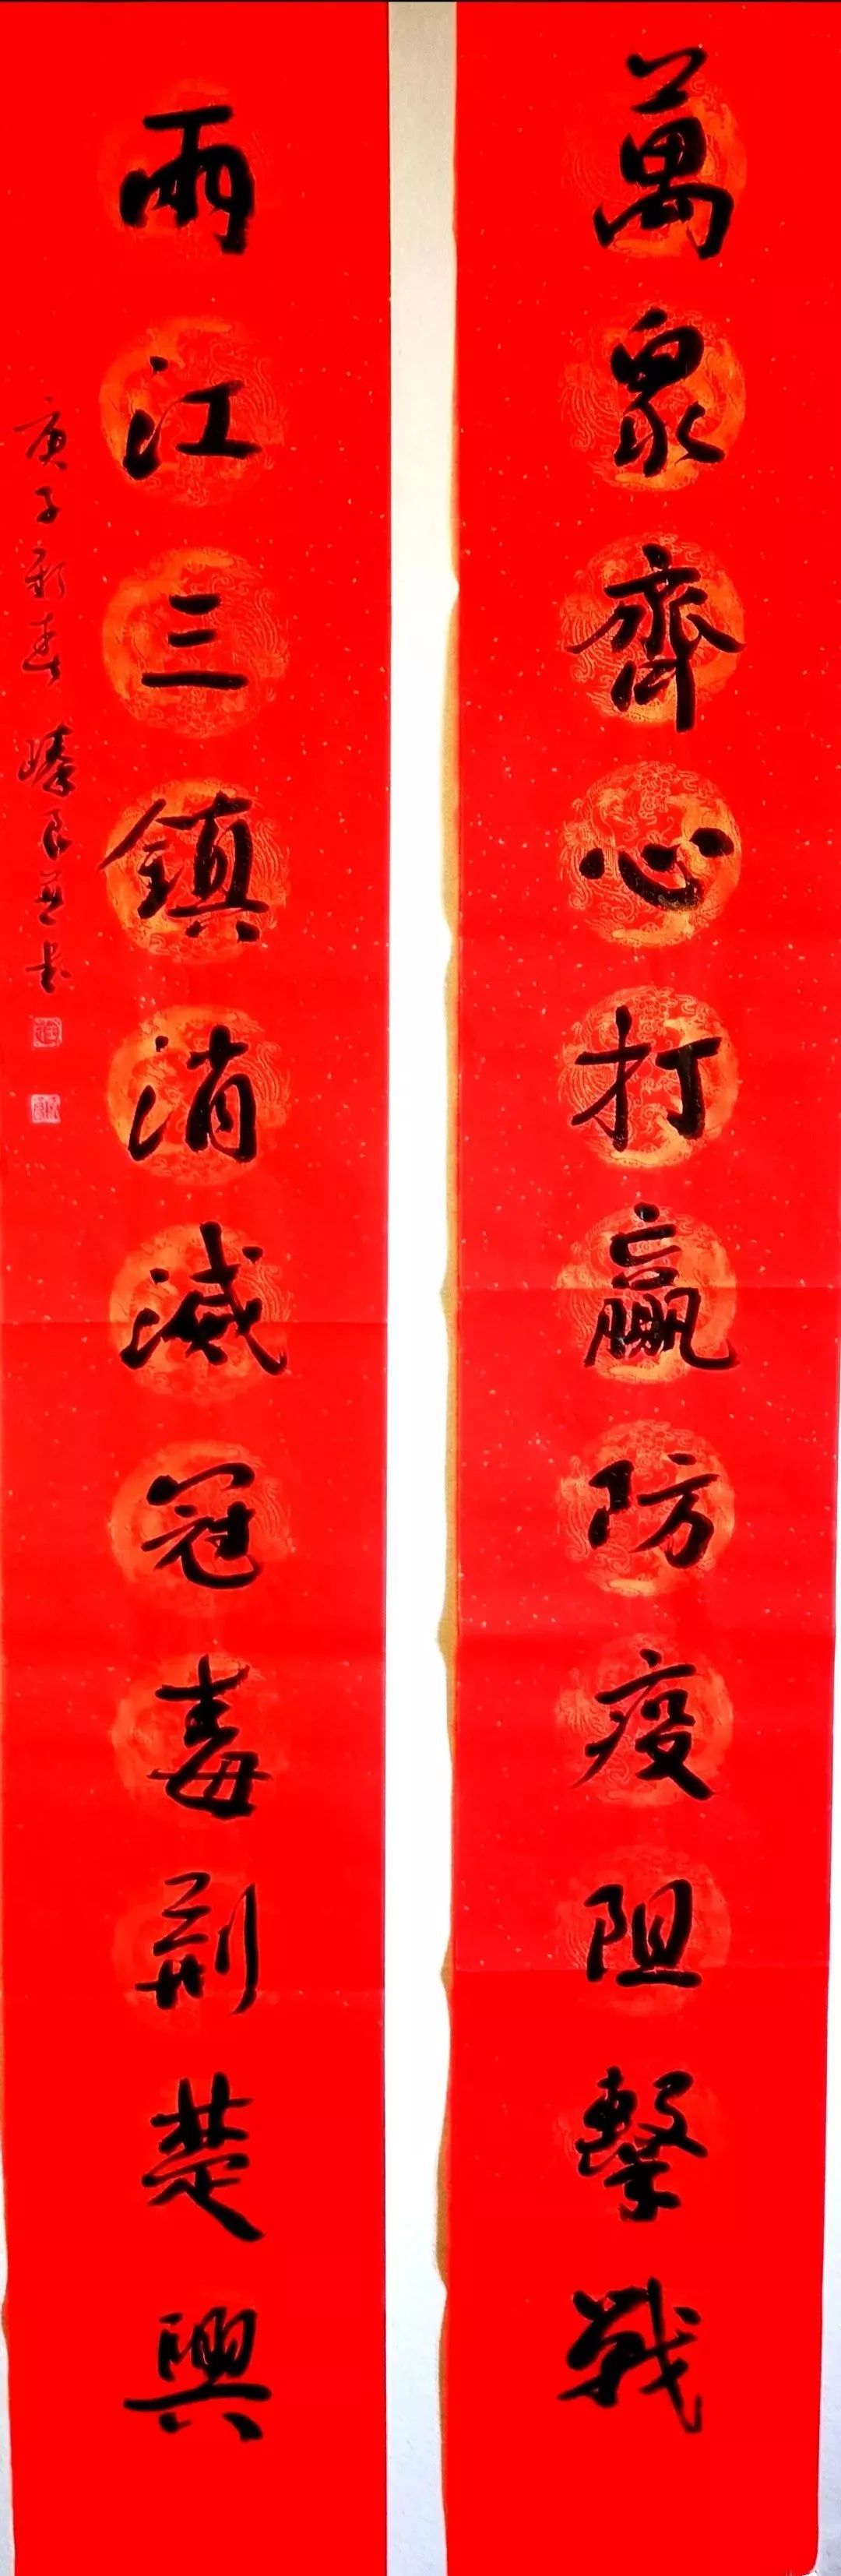 萬眾齊心打贏防疫阻擊戰
兩江三鎮消滅冠毒荊楚興
庚子新春 臻良書